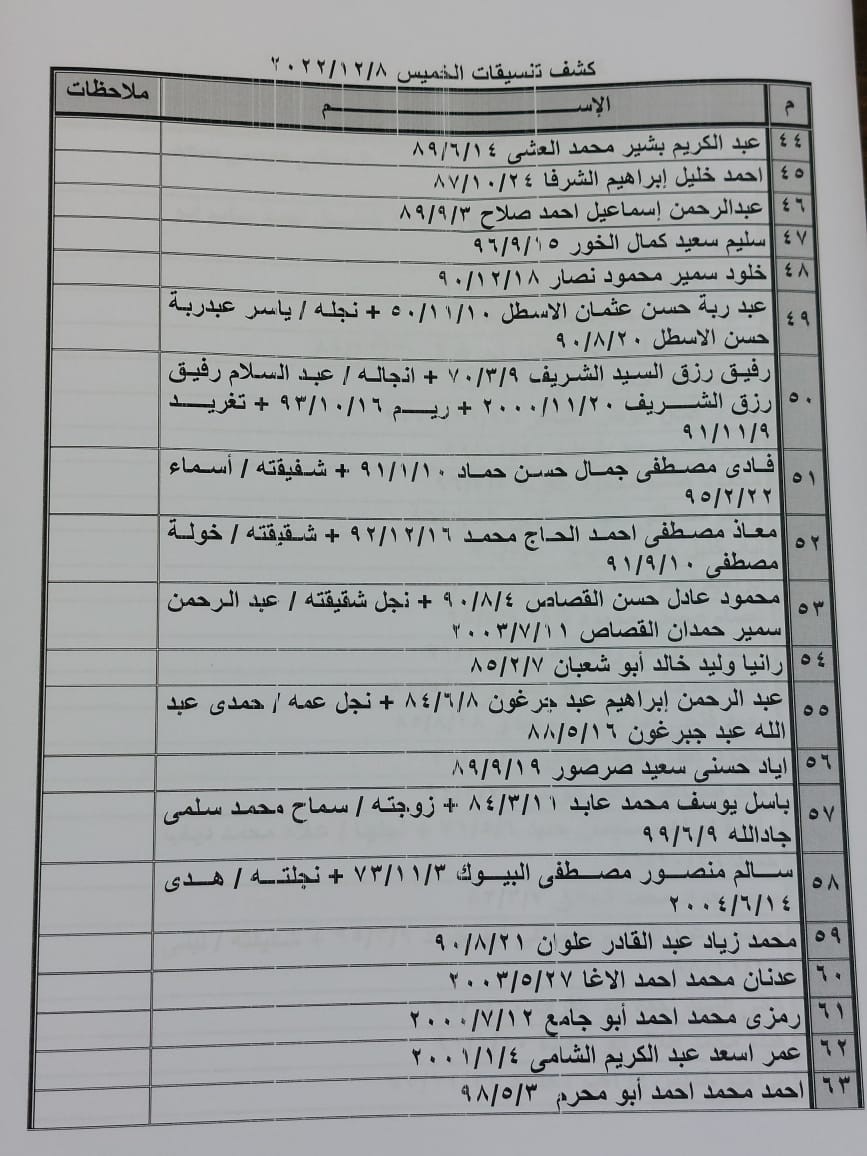 كشف تنسيقات الخميس ٢٠٢٢/١٢/٨
م الإســـــــــــم ملاحظات
٤٤ عبد الكريم بشير محمد العشى ٨٩/٦/١٤
٤٥ احمد خليل إبراهيم الشرفا ٨٧/١٠/٢٤
٤٦ عبدالرحمن إسماعيل احمد صلاح ٨٩/٩/٣
٤٧ سليم سعيد كمال الخور ٩٦/٩/١٥
٤٨ خلود سمير محمود نصار ٩٠/١٢/١٨
٤٩ عبد ربة حسن عثمان الاسطل ٥٠/١١/١٠ + نجله / ياسر عبدربة
حسن الاسطل ٩٠/٨/٢٠
٥٠ رفيق رزق السيد الشريف ٧٠/٣/٩ + انجاله / عبد السلام رفيق
رزق الشريف ٢٠٠٠/١١/٢٠ + ريم ٩٣/١٠/١٦ + تغريد
٩١/١١/٩
٥١ فادى مصطفى جمال حسن حماد ٩١/١/١٠ + شقيقته / أسماء
٩٥/٢/٢٢
٥٢ معاذ مصطفى احمد الحاج محمد ٩٢/١٢/١٦ + شقيقته / خولة
مصطفى ٩١/٩/١٠
٥٣ محمود عادل حسن القصاص ٩٠/٨/٤ + نجل شقيقته / عبد الرحمن
سمير حمدان القصاص ٢٠٠٣/٧/١١
٥٤ رانيا وليد خالد أبو شعبان ٨٥/٢/٧
٥٥ عبد الرحمن إبراهيم عبد جرغون ٨٤/٦/٨ + نجل عمه / حمدى عبد
الله عبد جبرغون ٨٨/٥/١٦
٥٦ اياد حسنى سعيد صرصور ٨٩/٩/١٩
٥٧ باسل يوسف محمد عابد ٨٤/٣/١١ + زوجته / سماح محمد سلمى
جادالله ٩٩/٦/٩
٥٨ سالم منصور مصطفى البيوك ٧٣/١١/٣ + نجلته / هدى
٢٠٠٤/٦/١٤
٥٩ محمد زياد عبد القادر علوان ٩٠/٨/٢١
٦٠ عدنان محمد احمد الاغا ٢٠٠٣/٥/٢٧
٦١ رمزى محمد احمد أبو جامع ٢٠٠٠/٧/١٢
٦٢ عمر اسعد عبد الكريم الشامى ٢٠٠١/١/٤
٦٣ احمد محمد احمد أبو محرم ٩٨/٥/٣